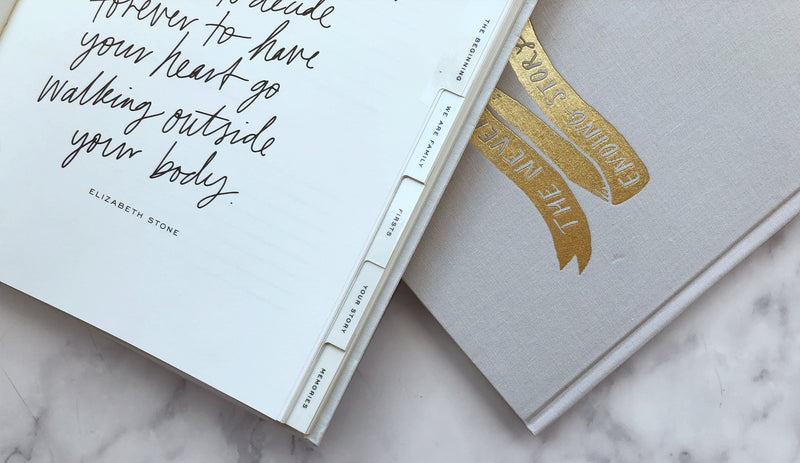 to decide
forever to have
your heart go
walking outside
your body.
ELIZABETH STONE
THE BEGINNING
WE ARE FAMILY
FIRSTS
YOUR STORY
MEMORIES
THE NEVE
ENDING STORY